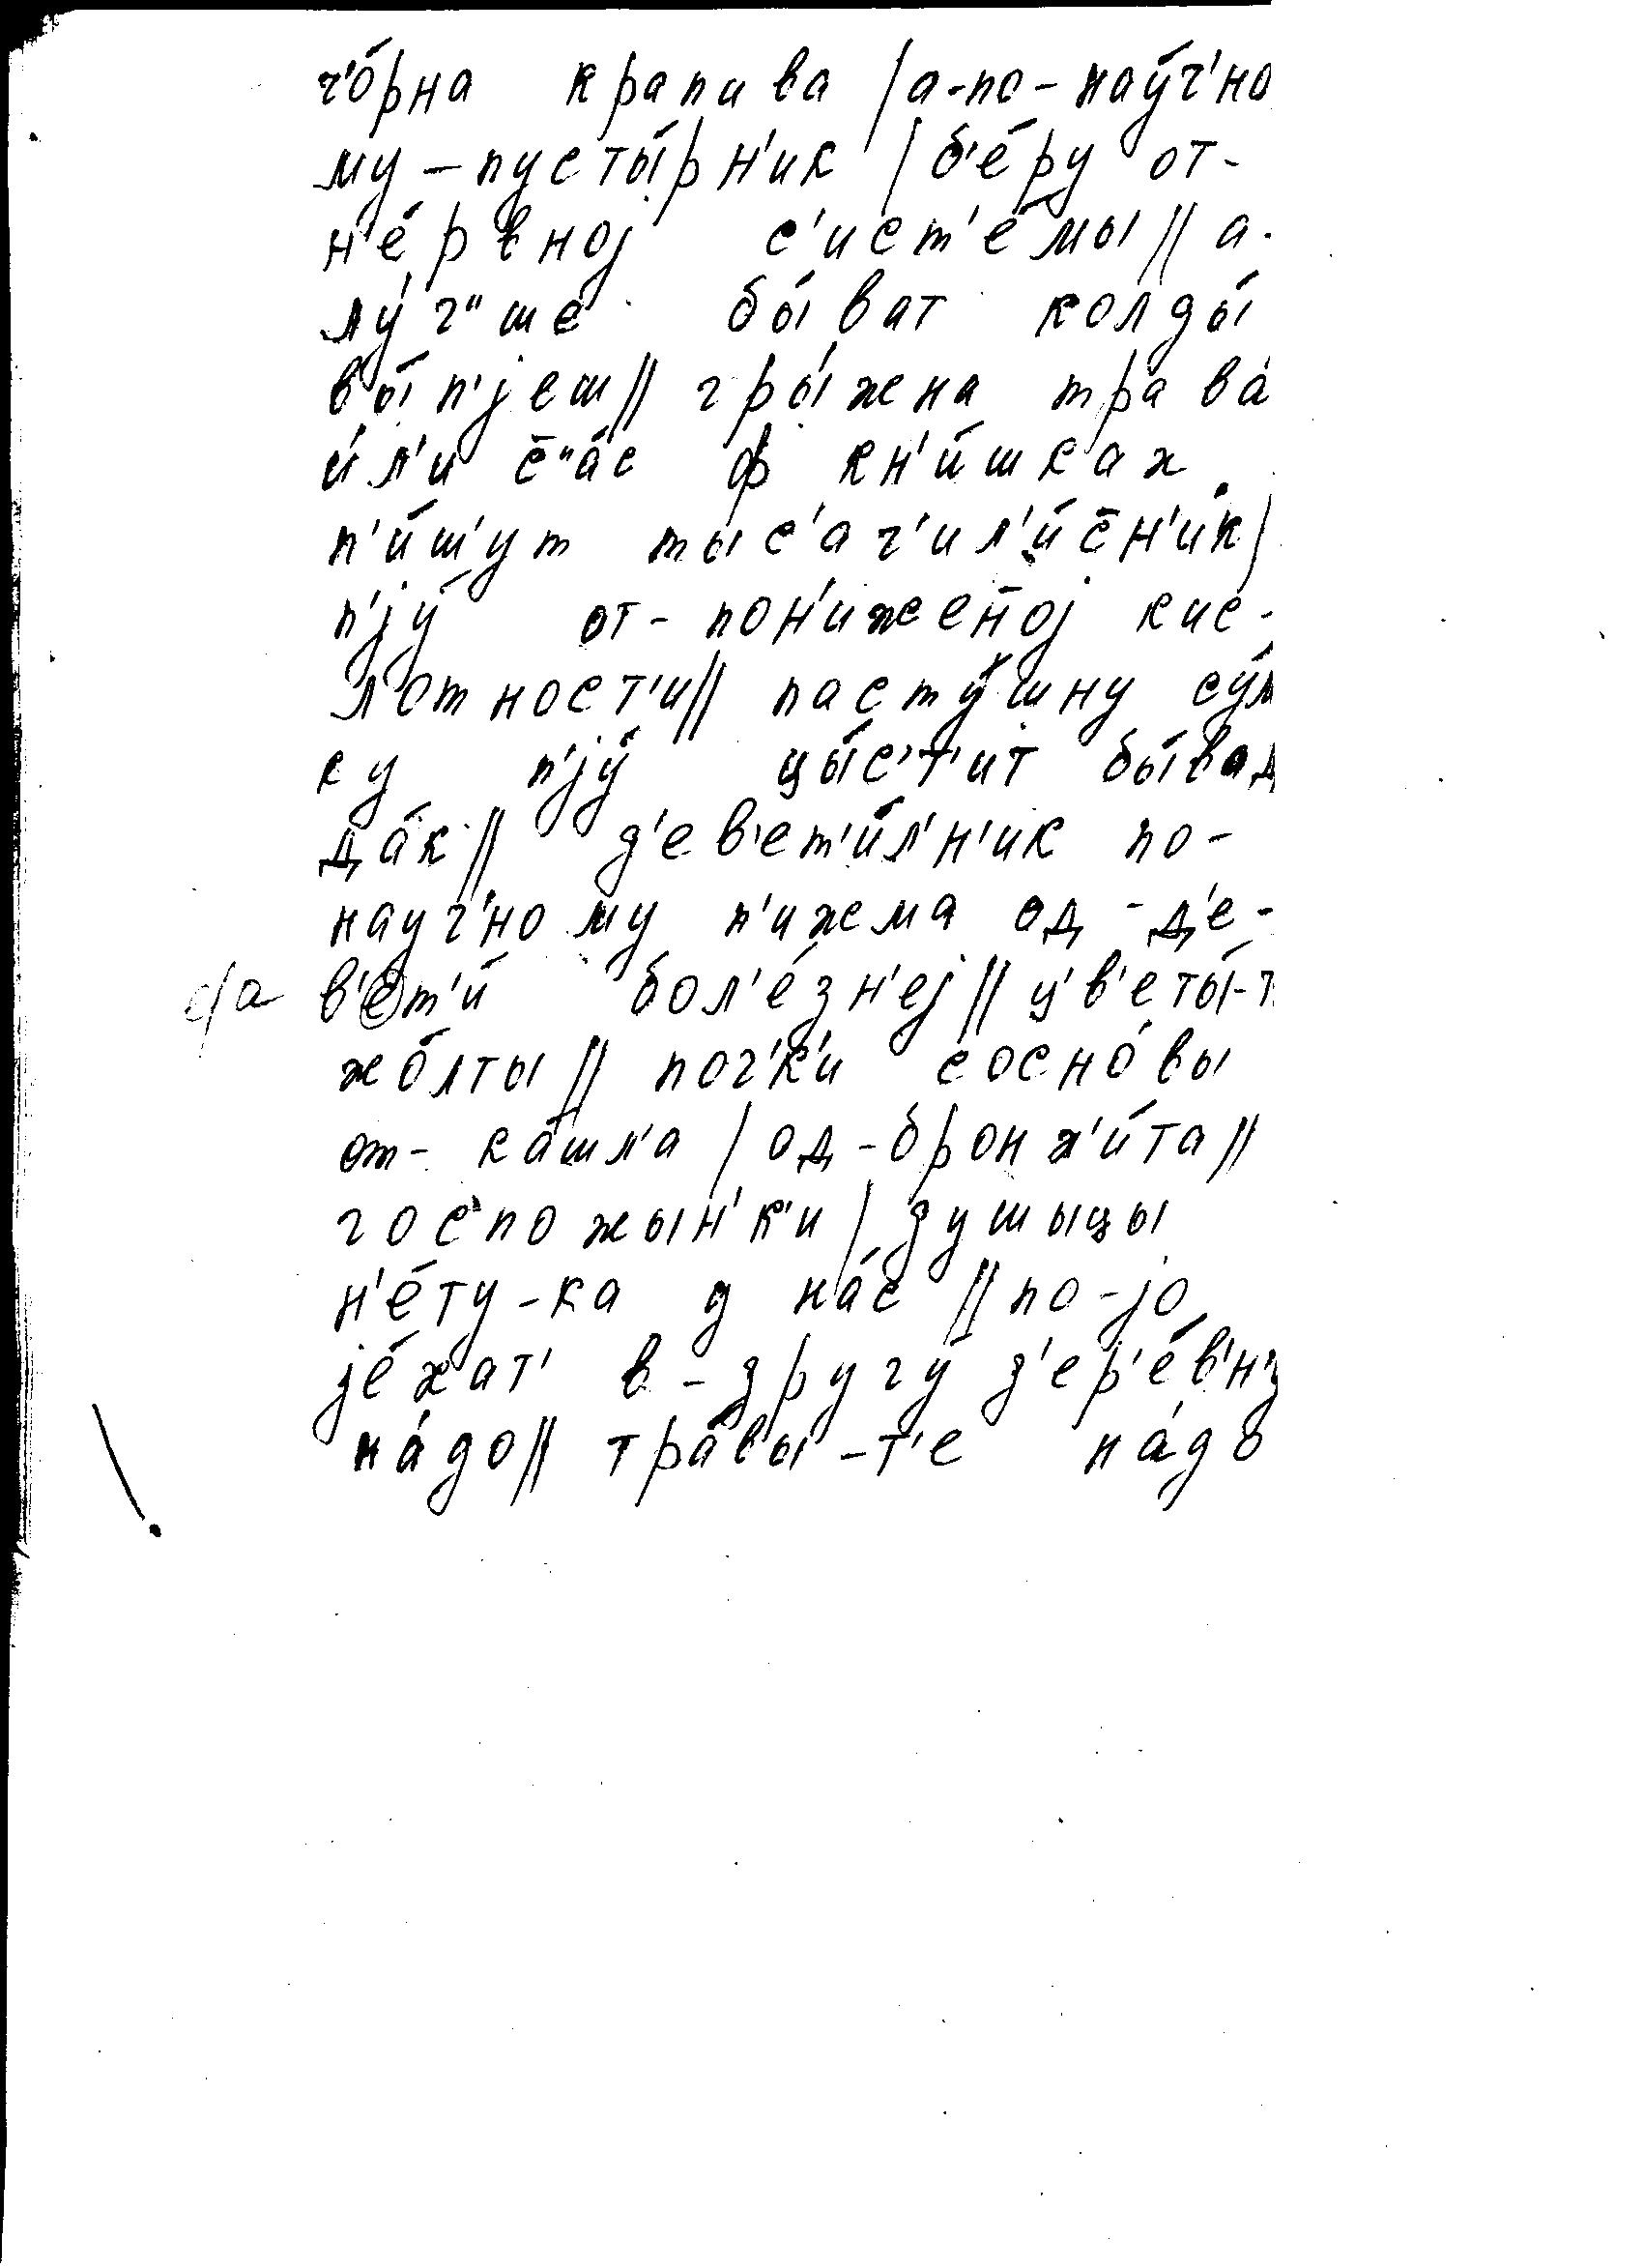 ч'о́рна крапива | а-по-нау́ч'но
му – пусты́рн'ик | б'е́ру от-
н'е́рвноj с'ист'е́мы || а-
лу́ч"ше бы́ват колды́
вы́п'jеш || гры́жена трава́
и́л'и с̄"а́с ф кн'и́шках
п'и́шут тыс'ач'ил'и́с̄н'ик |
п'jу́ от- пон'ижен̄оj кис-
лотност'и || пасту́шну су́м
ку п'jу́ цы́с'т'ит быват
да́к || д'ев'ет'и́л'н'ик по-
науч'ному п'ижма од-д'е-
с/а в'ет'и́ бол'е́зн'еj || ц'в'еты́-т
жо́лты || поч'к'и сосно́вы
от- ка́шл'а | од-бронх'и́та ||
госпожын'к'и | душыцы
н'е́ту-ка у на́с || по-jо
jе́хат' в-другу́ д'ер'е́в'н'у
на́до || тра́вы-т'е на́до